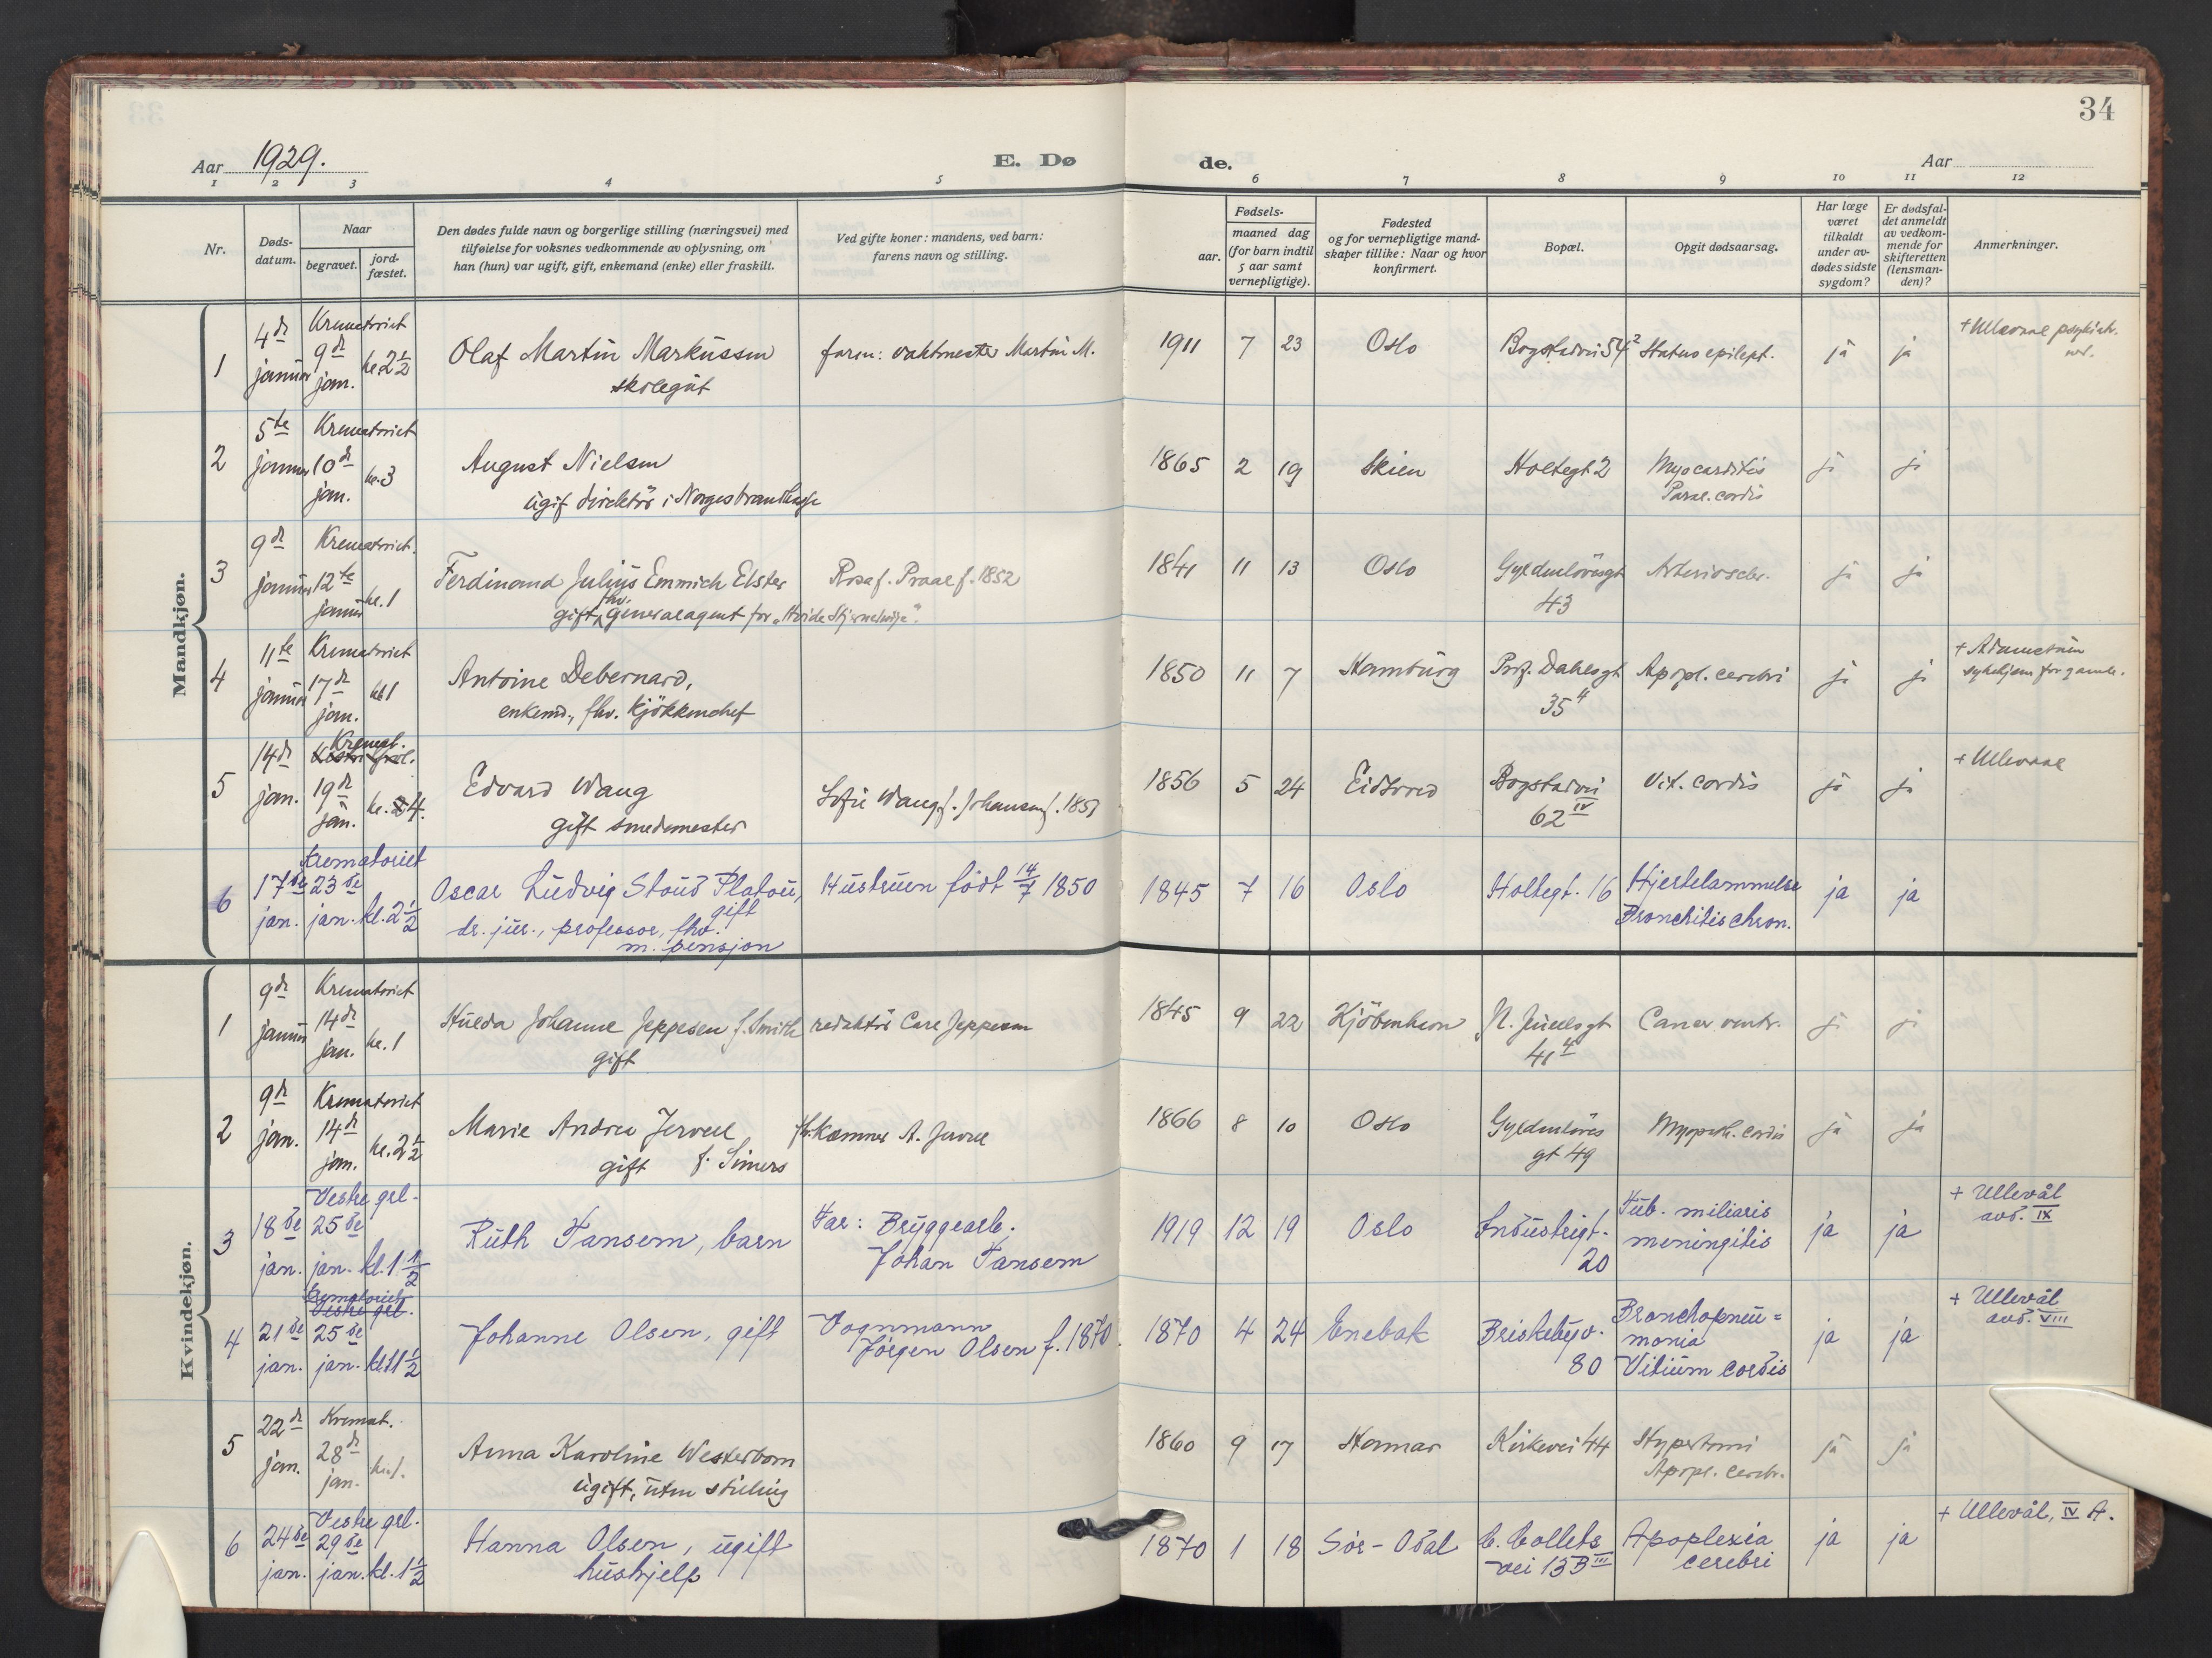 34
Aar 1929.
E. Dø
de.
Aar
1 2 3 4 5 6 7 8 9 10 11 12
Nr.
Døds-
datum.
Naar
begravet.
jord-
fæstet.
Den dødes fulde navn og borgerlige stilling (næringsvei) med
tilføielse for voksnes vedkommende av oplysning, om
han (hun) var ugift, gift, enkemand (enke) eller fraskilt.
Ved gifte koner: mandens, ved barn:
farens navn og stilling.
Fødsels-
aar.
maaned dag
(for barn indtil
5 aar samt
vernepligtige).
Fødested
og for vernepligtige mand-
skaper tillike: Naar og hvor
konfirmert.
Bopæl.
Opgit dødsaarsag.
Har læge
været
tilkaldt
under av-
dødes sidste
sygdom?
Er dødsfal-
det anmeldt
av vedkom-
mende for
skifteretten
(lensman-
den)?
Anmerkninger.
Mandkjøn.
1 4de januar Krematoriet 9de jan. kl. 2 1/2
Olaf Martin Markussen
skolegut
faren: vaktmester Martin M.
1911 7 23 Oslo Bogstadvei 54² Status epilept. ja ja
+ Ullevaal psykiatr.
2 5te januar Krematoriet 10de jan. kl. 3
August Nielsen
ugift direktör i Norges brandkasse
1865 2 19 Skien Holtegt 2 Myocarditis
Paral. cordis
ja ja
3 9de januar Krematoriet. 12te januar kl. 1
Ferdinand Julius Emmich Elster
gift, fhv. generalagent for "Hvide Stjernelinje".
Rosa f. Praal f. 1852
1841 11 13 Oslo Gyldenlövesgt
43
Arterioscler. ja ja
4 11te januar Krematoriet 17de jan. kl 1
Antoine Debernard,
enkemd., fhv. kjökkenchef
1850 11 7 Hamburg Prof. Dahlsgt
35 4
Apopl. cerebri ja ja
sykehjem for gamle.
5 14de jan. Kremat. 19de jan. kl. 4.
Edvard Waug
gift smedmester
Sofie Waug f. Johansen f. 1857
1856 5 24 Eidsvold Bogstadvei
62 IV
Vit. cordis ja ja
+ Ullevaal
6 17de jan. Krematoriet 23de jan. kl. 2 1/2
Oscar Ludvig Stoud Platou,
gift
dr. jur., professor, fhv.
m. pensjon
Hustruen födt 14/7 1850
1845 7 16 Oslo Holtegt. 16 Hjertelammelse
Bronchitis chron.
ja ja
Kvindekjøn.
1 9de januar Krematoriet 14de jan. kl. 1
Hulda Johanne Jeppesen f. Smith
gift
redaktör Carl Jeppesen
1845 9 22 Kjöbenhavn N. Juelsgt
41 4
Cancer ventr. ja ja
2 9de jan. Krematoriet 14de jan. kl. 2 1/2
Marie Andrea Jervell
gift f. Simers
fhv. kæmner A. Jervell
1866 8 10 Oslo Gyldenlöves
gt 49
Myopath. cordis ja ja
3 18de jan. Vestre grl. 25de jan. kl. 1 1/2
Ruth Tansem, barn
Far: Bryggearb.
Johan Tansem
1919 12 19 Oslo Industrigt.
20
Tub. miliaris
meningitis
ja ja
+ Ullevål
avd. IX
4 21de jan. Krematoriet Vestre grl. 25de jan. kl. 11 1/2
Johanne Olsen, gift
Vognmann
Jörgen Olsen f. 1870.
1870 4 24 Enebak Briskebyv.
80
Bronchopneu=
monia
Vitium cordis
ja ja
+ Ullevål
avd. VIII
5 22de jan. Kremat. 28de jan. kl. 1.
Anna Karoline Westerborn
ugift, uten stilling
1860 9 17 Hamar Kirkevei 44 Hypertoni
Apopl. cerebr.
ja ja
6 24de jan. Vestre grl. 29de jan. kl. 1 1/2
Hanna Olsen, ugift
hushjelp
1870 1 18 Sör-Odal C. Collets
vei 13 B III
Apoplexia
cerebri
ja ja
+ Ullevål, IV A.